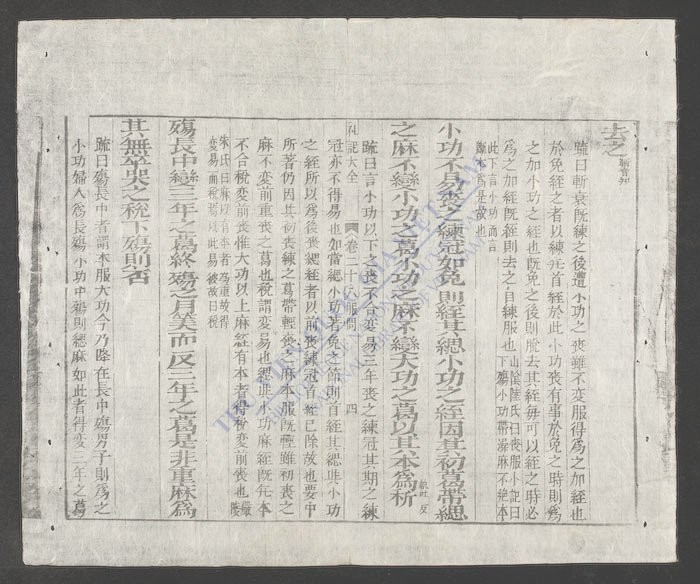 去之
疏曰斬衰既練之後遭小功之喪雖不変服得爲之加絰也
於免絰之者以練无首絰於此小功喪有事於免之時則爲
之加小功之絰也既免之後則脫去其絰每可以絰之時必
爲之加絰既絰則去之自練服也 山陰陸氏曰喪服小記曰
下殤小功帶澡麻不絶本
此下言小功而言
小功不易喪之練冠如免則絰其緦小功之絰因其初葛帶緦
之麻不變小功之葛小功之麻不變大功之葛以其本爲稅
疏曰言小功以下之喪不合变易三年喪之練冠其期之練
礼記大全 卷二十八 服問 四
冠亦不得易也如當緦小功著免之節則首絰其緦與小功
之絰所以爲後喪緦絰者以前喪練冠首絰已除故也要中
所著仍因其初喪練之葛帶輕喪之麻本服既輕雖初喪之
麻不变前重喪之葛也稅謂変易也緦與小功麻絰既无本
不合稅変前喪惟大功以上麻絰有本者得稅変前喪也
朱氏曰麻以有本者爲重故得
変易而稅
殤長中變三年之葛終殤之月筭而反三年之葛是非重麻爲
其無卒哭之稅下殤則否
疏曰殤長中者謂本服大功今乃降在長中殤男子則爲之
小功婦人爲長殤小功中殤則緦麻如此者得変三年之葛